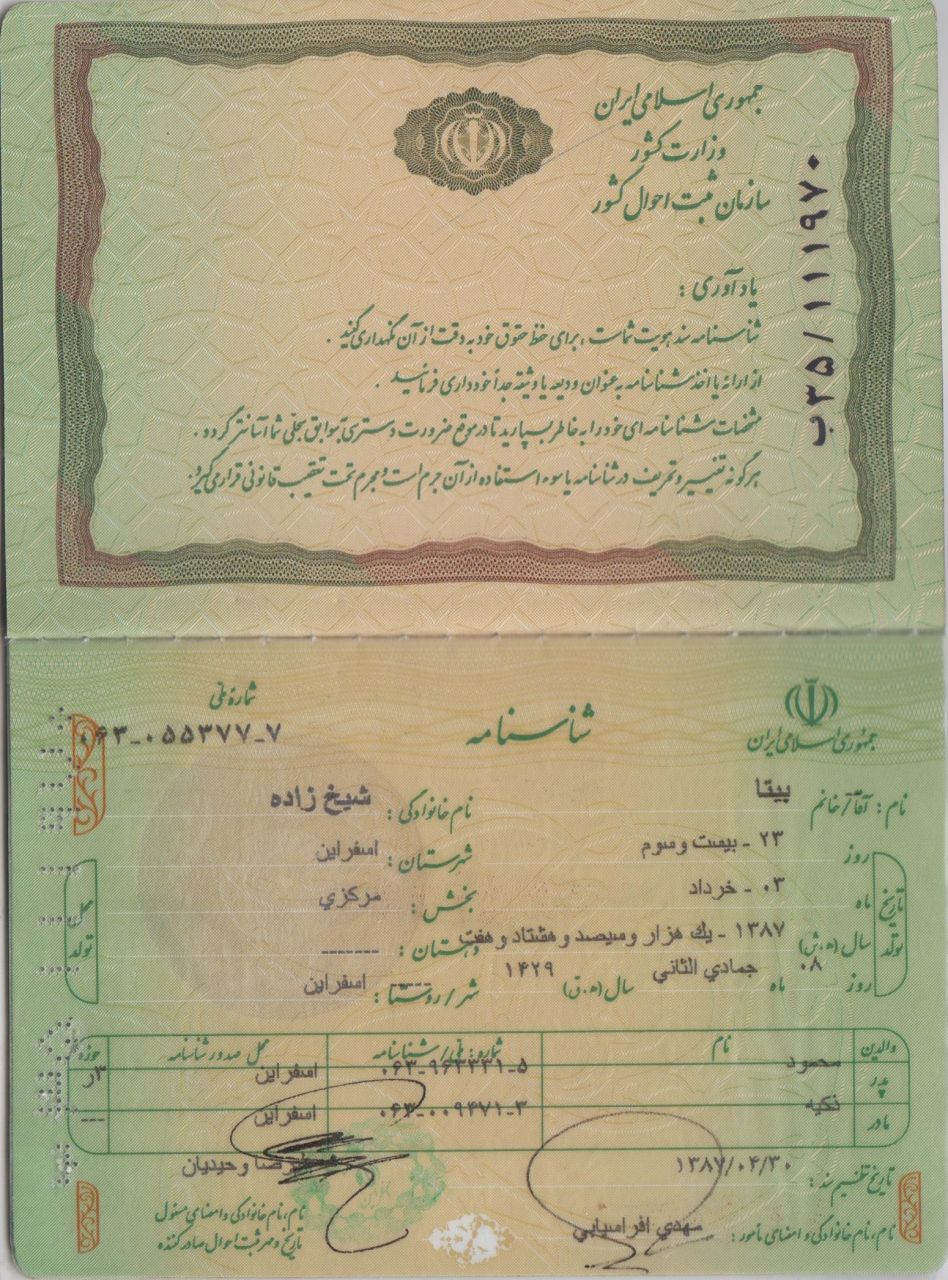 جمهوری اسلامی ایران
وزارت کشور
سازمان ثبت احوال کشور
ب۳۵/۱۱۱۹۷۰
یادآوری :
شناسنامه سند هویت شماست ، برای حفظ حقوق خود به دقت از آن نگهداری کنید .
از ارائه یا اخذ شناسنامه به عنوان ودیعه یا وثیقه جداً خودداری فرمائید .
مشخصات شناسنامه ای خود را به خاطر بسپارید تا در موقع ضرورت دسترسی به سوابق سجلی شما آسانتر گردد .
هرگونه تغییر و تحریف در شناسنامه یا سوء استفاده از آن جرم است و مجرم تحت تعقیب قانونی قرار می گیرد .
جمهوری اسلامی ایران
شناسنامه
شماره ملی
۰۶۳-۰۵۵۳۷۷-۷
نام : آقا/خانم بيتا نام خانوادگی : شيخ زاده
تاریخ تولد
روز ۲۳ - بيست وسوم
ماه ۰۳ - خرداد
سال (ه.ش) ۱۳۸۷ - يك هزار وسيصد و هشتاد و هفت
روز ۰۸ ماه جمادي الثاني سال (ه.ق) ۱۴۲۹
محل تولد
شهرستان : اسفراين
بخش : مركزي
دهستان : -------
شهر / روستا : اسفراين
والدین نام شماره : ملی/شناسنامه محل صدور شناسنامه حوزه
پدر محمود ۰۶۳-۹۶۳۳۳۱-۵ اسفراين ۳ر
مادر ذكيه ۰۶۳-۰۰۹۴۷۱-۳ اسفراين ---
تاریخ تنظیم سند : ۱۳۸۷/۰۴/۳۰
نام، نام خانوادگی و امضای مأمور : مهدي افراسيابي
وحيديان
نام، نام خانوادگی و امضای مسئول
تاریخ و مهر ثبت احوال صادرکننده